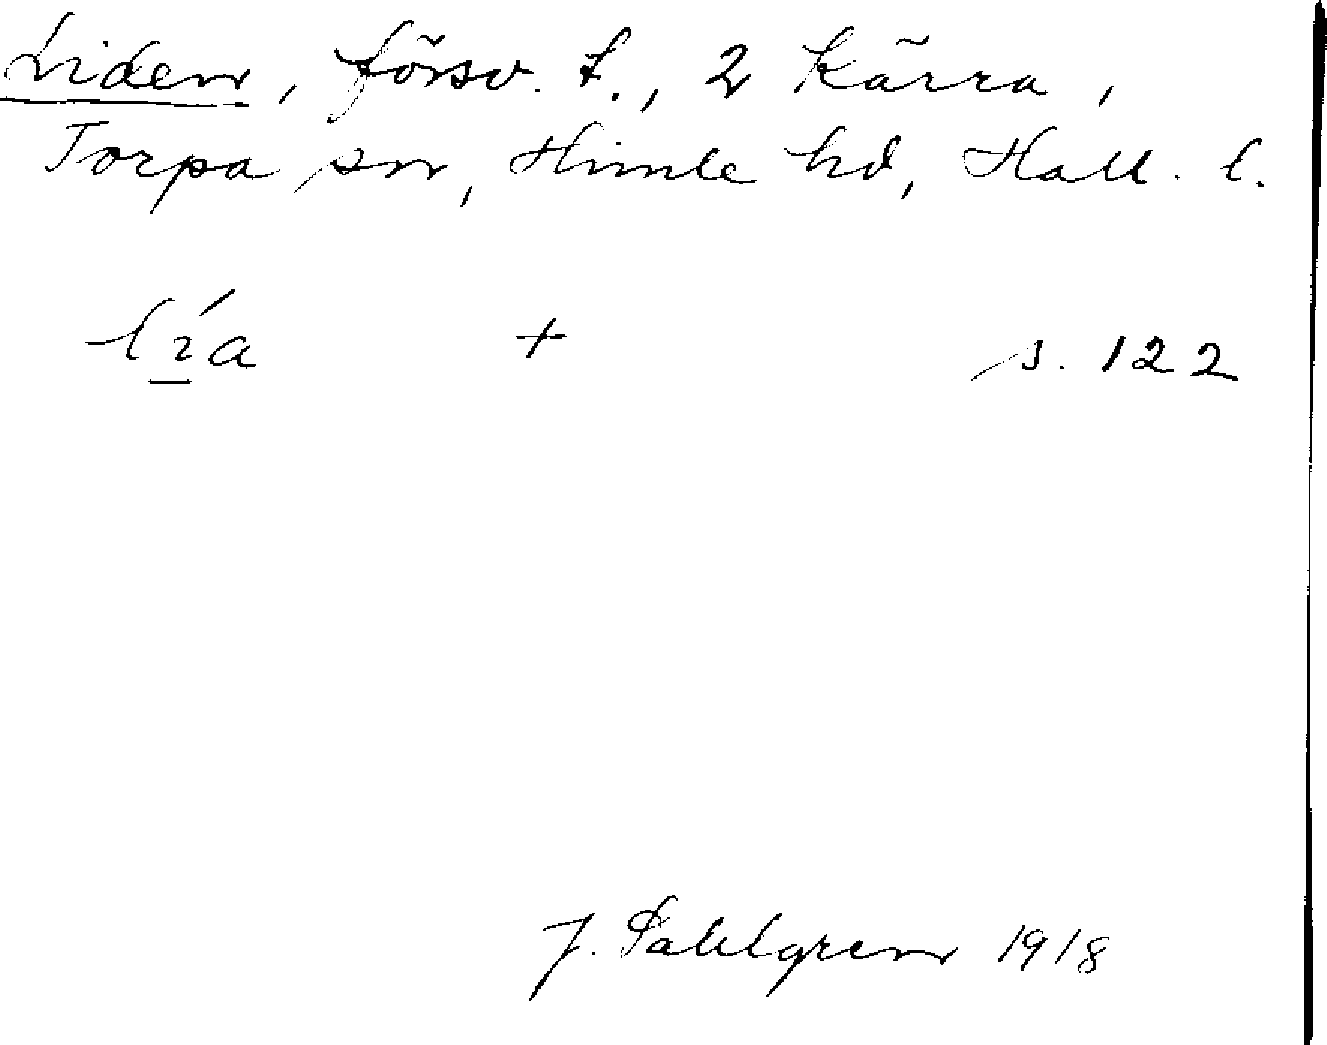 Liden, försv. t., 2 Kärra,
Torpa sn, Himle hd, Hall. l.
lı̱́a + s. 122
J. Sahlgren 1918